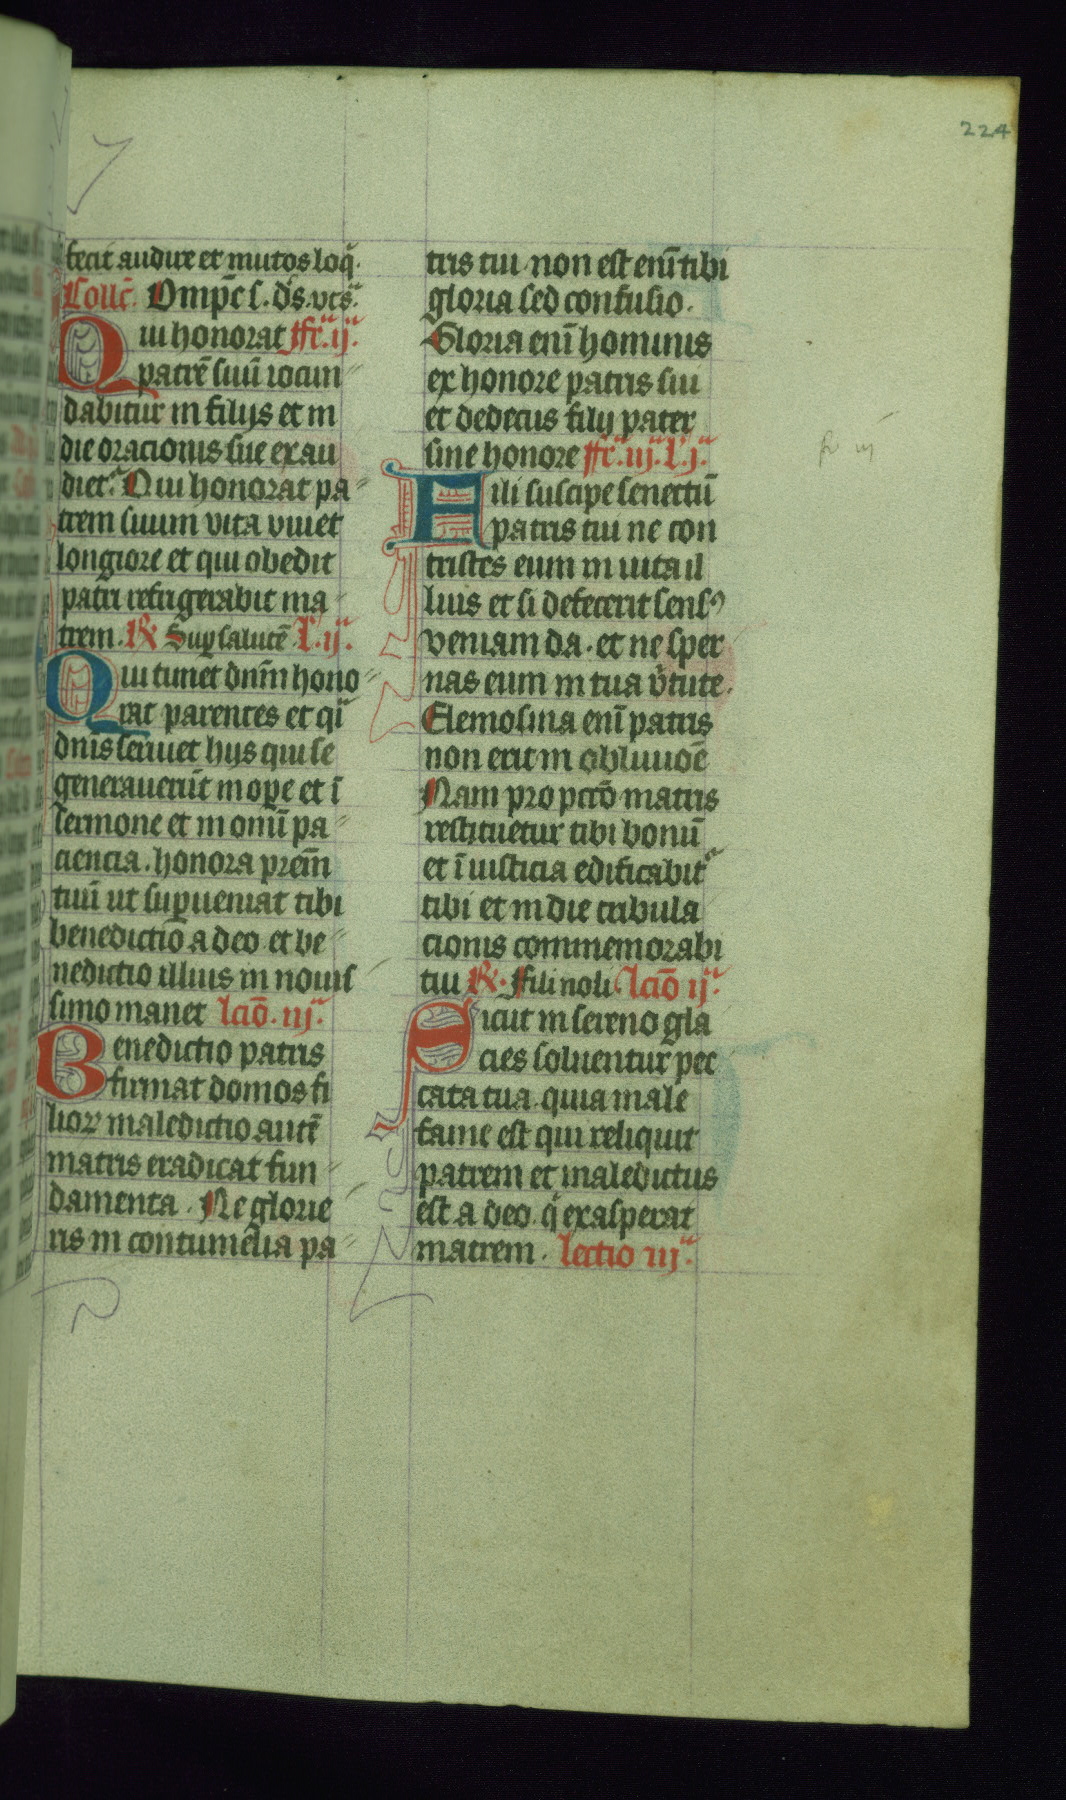 224
fecit audire et mutos loq̄.
Coll̄c. Omp̄c s. d̄s. vt s.
Qui honorat ffr̄. ij.
patrē suū iocun
dabitur in filijs et in
die oracionis sue exau
diet͛. Qui honorat pa
trem suum vita viuet
longiore et qui obedit
patri refrigerabit ma
trem. R̸ Suꝑ salutē L. ij.
Qui timet dn̄m hono
rat parentes et qi
dn̄is seruiet hijs qui se
generauerūt in oꝑe et ī
sermone et in omī pa
ciencia. honora pr̄em̄
tuū ut suꝑueniat tibi
benedictio a deo et be
nedictio illius in nouis
simo manet lc̄io. iij.
Benedictio patris
firmat domos fi
lioꝝ maledictio autē
matris eradicat fun
damenta. Ne glorie
ris in contumelia pa
tris tui non est enī tibi
gloria sed confusio.
Gloria enī hominis
ex honore patris sui
et dedecus filij pater
sine honore ffr̄. iij. L. j.
Fili suscipe senectū
patris tui ne con
tristes eum in uita il
lius et si defecerit sensꝰ
veniam da. et ne sper
nas eum in tua v̄tute.
Elemosina enī patris
non erit in obliuiōe
Nam pro pctō matris
restituetur tibi bonū
et ī iusticia edificabit͛
tibi et in die tribula
cionis commemorabi
tui R̸. Fili noli lc̄io ij.
Sicut in sereno gla
cies soluentur pec
cata tua. quia male
fame est qui reliquit
patrem et maledictus
est a deo. qͥ exasperat
matrem. lectio iij.
fr iij